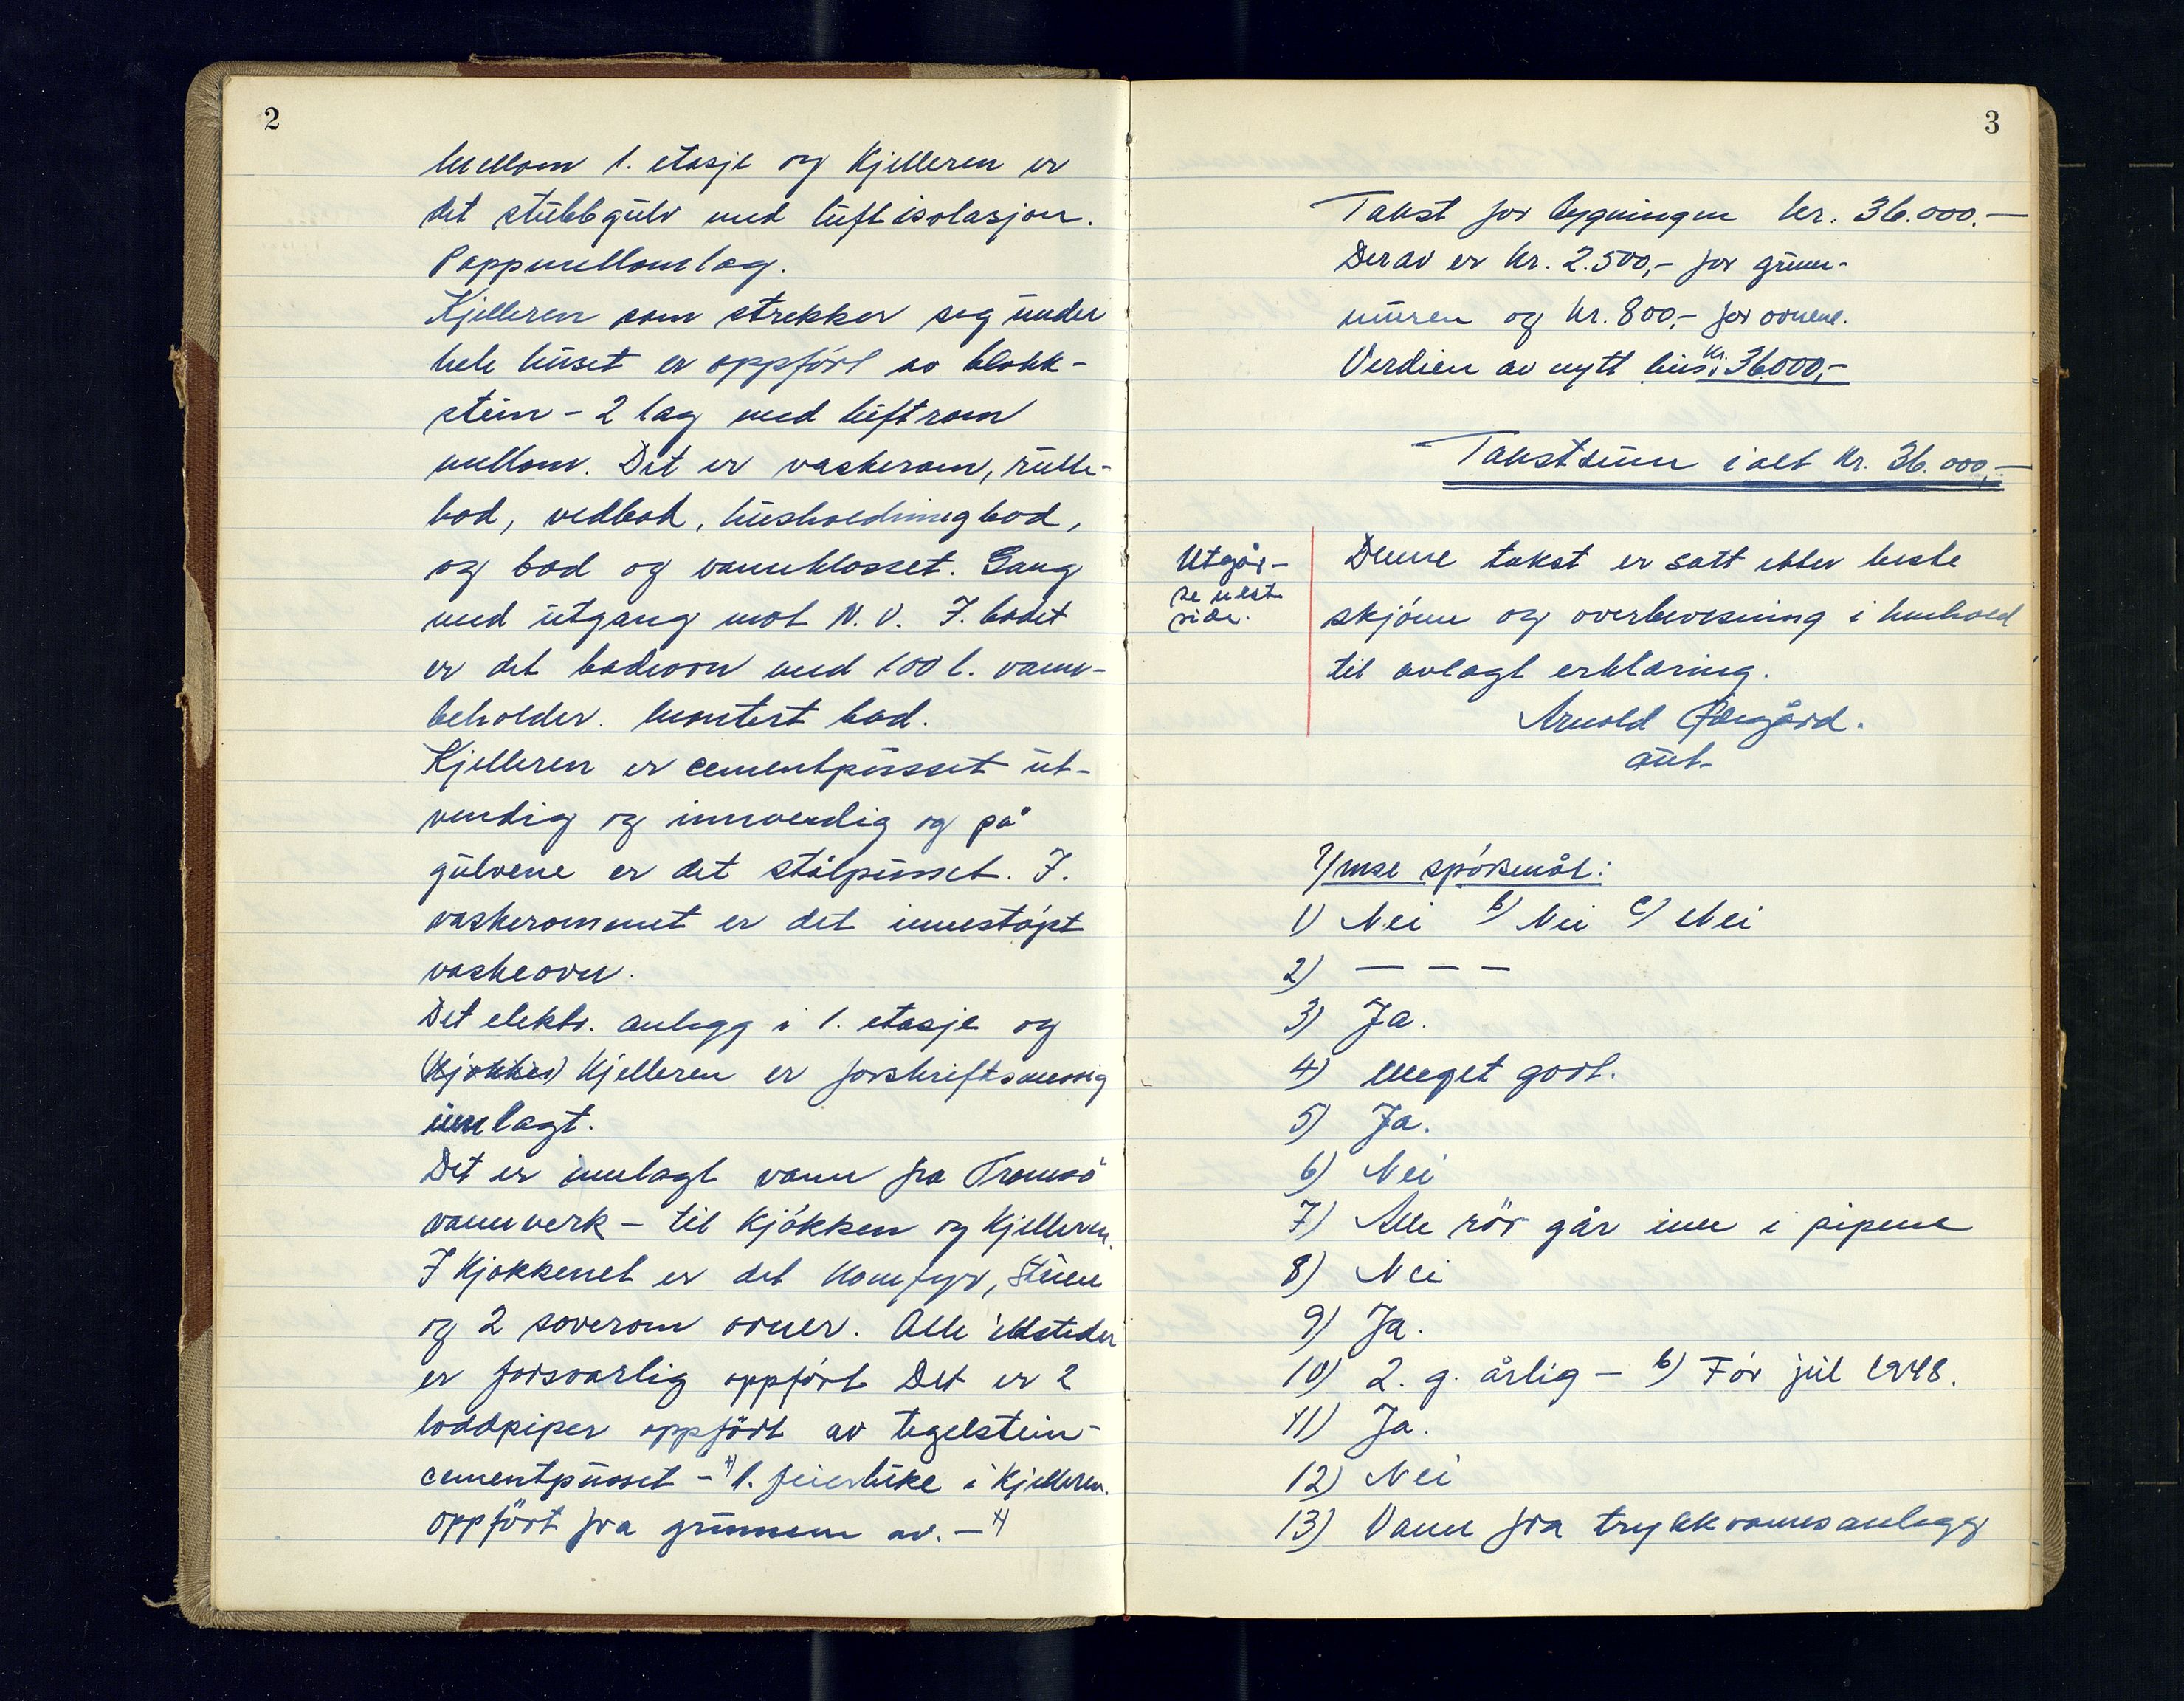 2
Mellom 1. etasje og Kjelleren er
det stubbgulv med luftisolasjon.
Pappmellomlag.
Kjelleren som strekker seg under
hele huset er oppført av blokk-
stein - 2 lag med luftrom
mellom. Det er vaskerom, rulle-
bod, vedbod, husholdningbod,
og bad og vannklosset. Gang
med utgang mot N.V. I badet
er det badeovn med 100 l. vann-
beholder. Montert bad.
Kjelleren er cementpusset ut-
vendig og innvendig og på
gulvene er det stålpusset. I
vaskerommet er det innestøpt
vaskeovn.
Det elektr. anlegg i 1. etasje og
(Kjøkken) Kjelleren er forskriftsmessig
innlagt.
Det er innlagt vann fra Tromsø
vannverk - til Kjøkken og Kjelleren.
I Kjøkkenet er det Komfyr, Stuen
og 2 soverom ovner. Alle ildsteder
er forsvarlig oppført Det er 2
loddpiper oppført av tegelstein-
cementpusset - x) 1. feierluke i Kjelleren.
oppført fra grunnen av. - x)
3
Takst for bygningen kr. 36.000.-
Derav er kr. 2.500,- for grunn-
muren og kr. 800,- for ovnene.
Verdien av nytt hus: kr. 36000,-
Takstsum i alt kr. 36.000,-
Utgår -
se nest
side.
Denne takst er satt etter beste
skjønn og overbevisning i henhold
til avlagt erklæring.
Arnold Ødegård.
aut-
Ymse spørsmål:
1) Nei b) Nei c) Nei
2) - - -
3) Ja.
4) Meget godt.
5) Ja.
6) Nei
7) Alle rør går inn i pipene
8) Nei
9) Ja.
10) 2. g. årlig - b) Før jul 1948.
11) Ja.
12) Nei
13) Vann fra trykkvannsanlegg